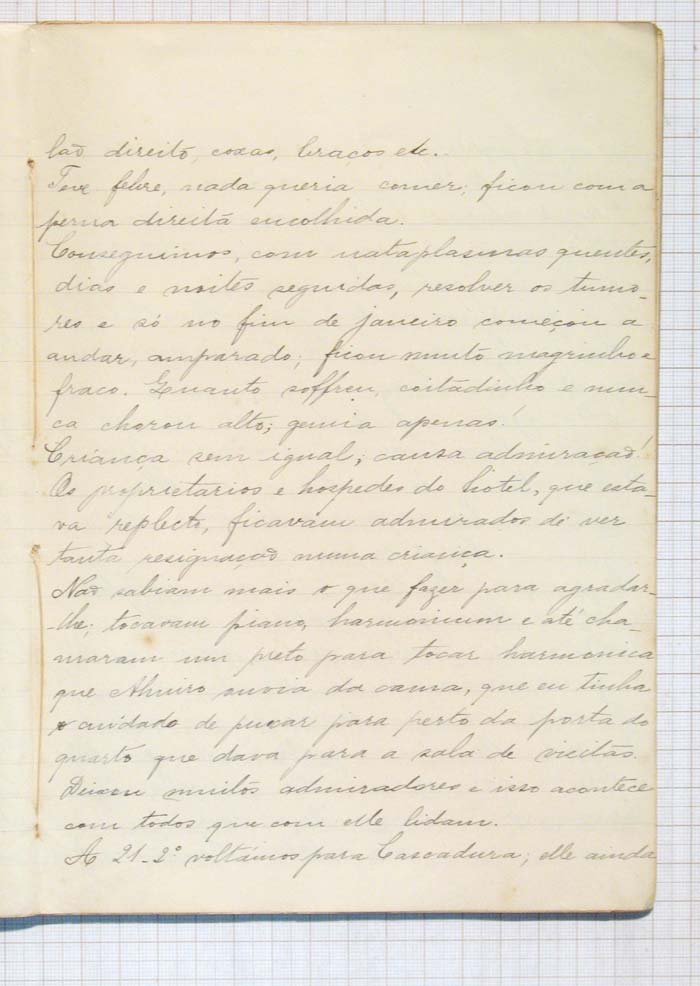 lão direito, coxas, braços etc..
Teve febre, nada queria comer; ficou com a
perna direitā encolhida.
Conseguimos, com cataplasmas quentes,
dias e noites seguidas, resolver os tumo-
res e só no fim de janeiro começou a
andar, amparado; ficou muito magrinho e
fraco. Quanto soffreu, coitadinho e nun-
ca chorou alto; gemia apenas!
Criança sem igual; causa admiração!
Os proprietarios e hospedes do hotel, que esta-
va repleto, ficavam admirados de ver
tanta resignação numa criança.
Não sabiam mais o que fazer para agradar-
-lhe; tocavam piano, harmonium e até cha-
maram um preto para tocar harmonica
que Almiro ouvia da cama, que eu tinha
o cuidado de puxar para perto da porta do
quarto que dava para a sala de vicitas.
Deixou muitos admiradores e isso acontece
com todos que com elle lidam.
A 21-2º voltámos para Cascadura; elle ainda